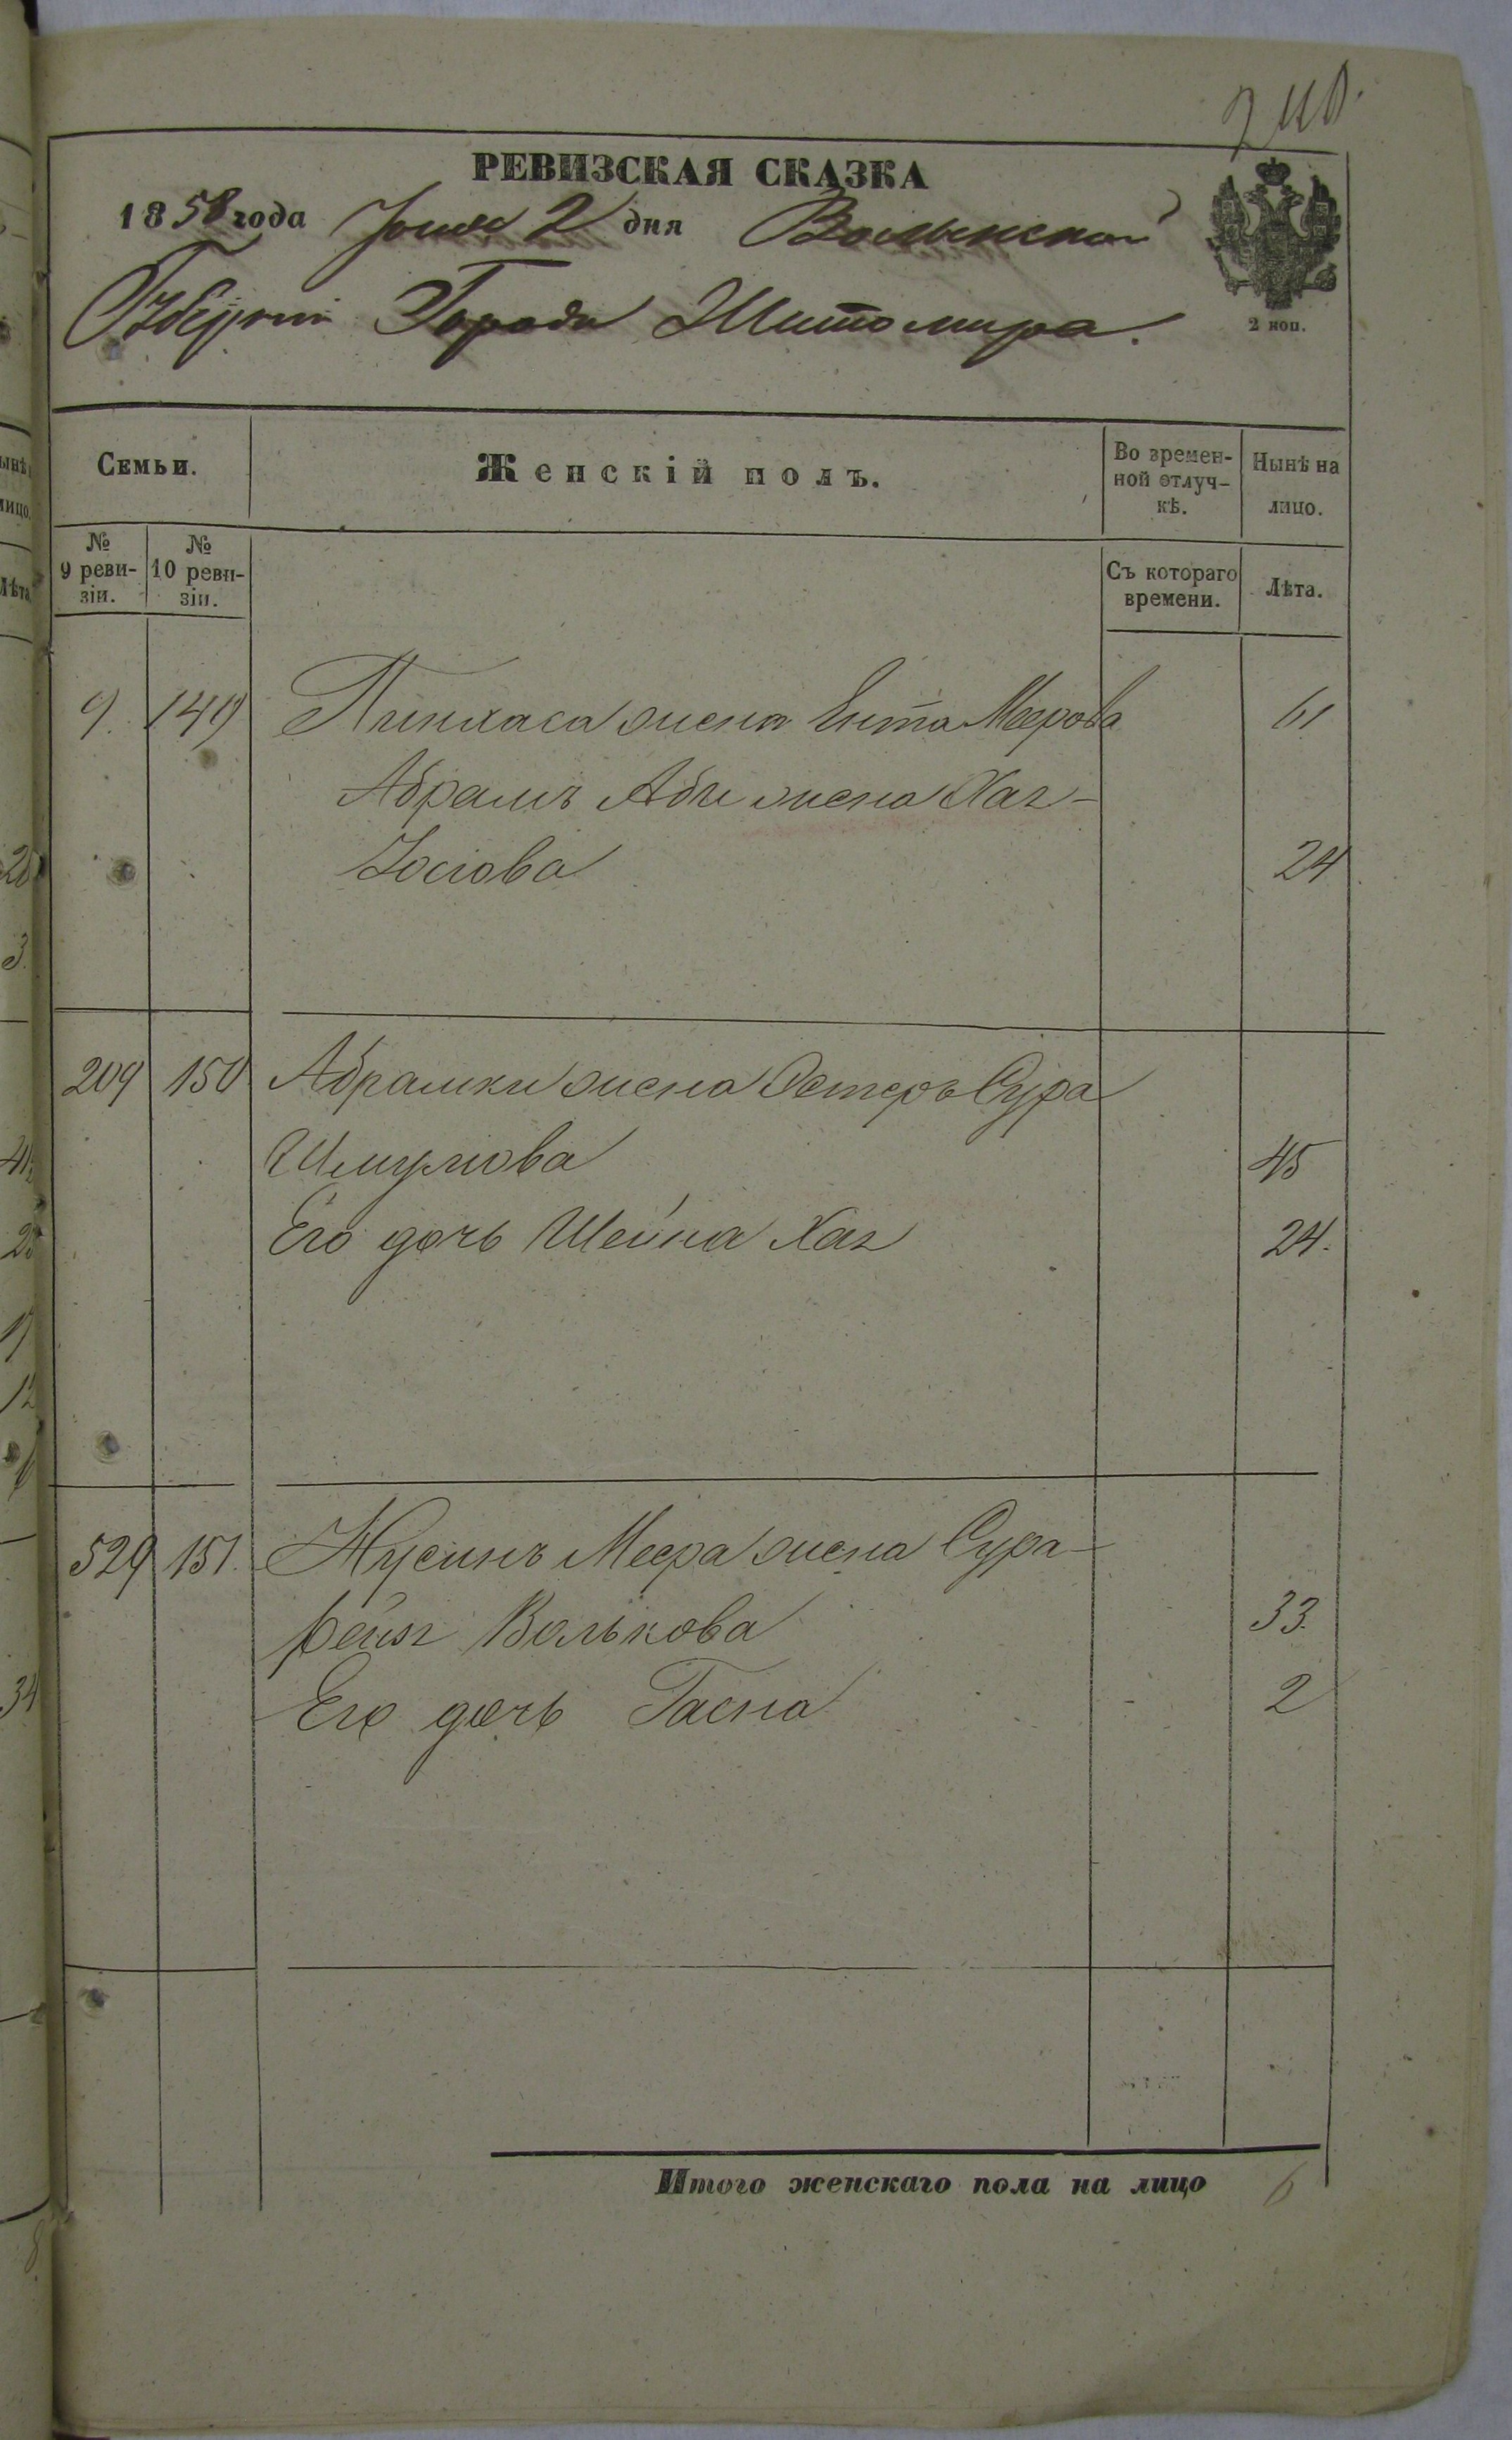 РЕВИЗСКАЯ СКАЗКА
1858 года Іюня 2 дня Волынской
Губерніи Города Житомира.
2 коп.
Семьи.
Женскій полъ.
Во времен-
ной отлуч-
кѣ.
Нынѣ на
лицо.
№
9 реви-
зіи.
№
10 реви-
зіи.
Съ котораго
времени.
Лѣта.
9. 149 Пинхаса жена Ента Меерова 61
Абрамъ Абы жена Хая-
Іосіова 24
209 150 Абрамки жена Эстеръ Сура
Шмулiова 45
Его дочь Шейна Хая 24.
529 151. Нусинъ Меера жена Сура-
Рейзя Волькова 33.
Его дочь Гасна 2
Итого женскаго пола на лицо 6